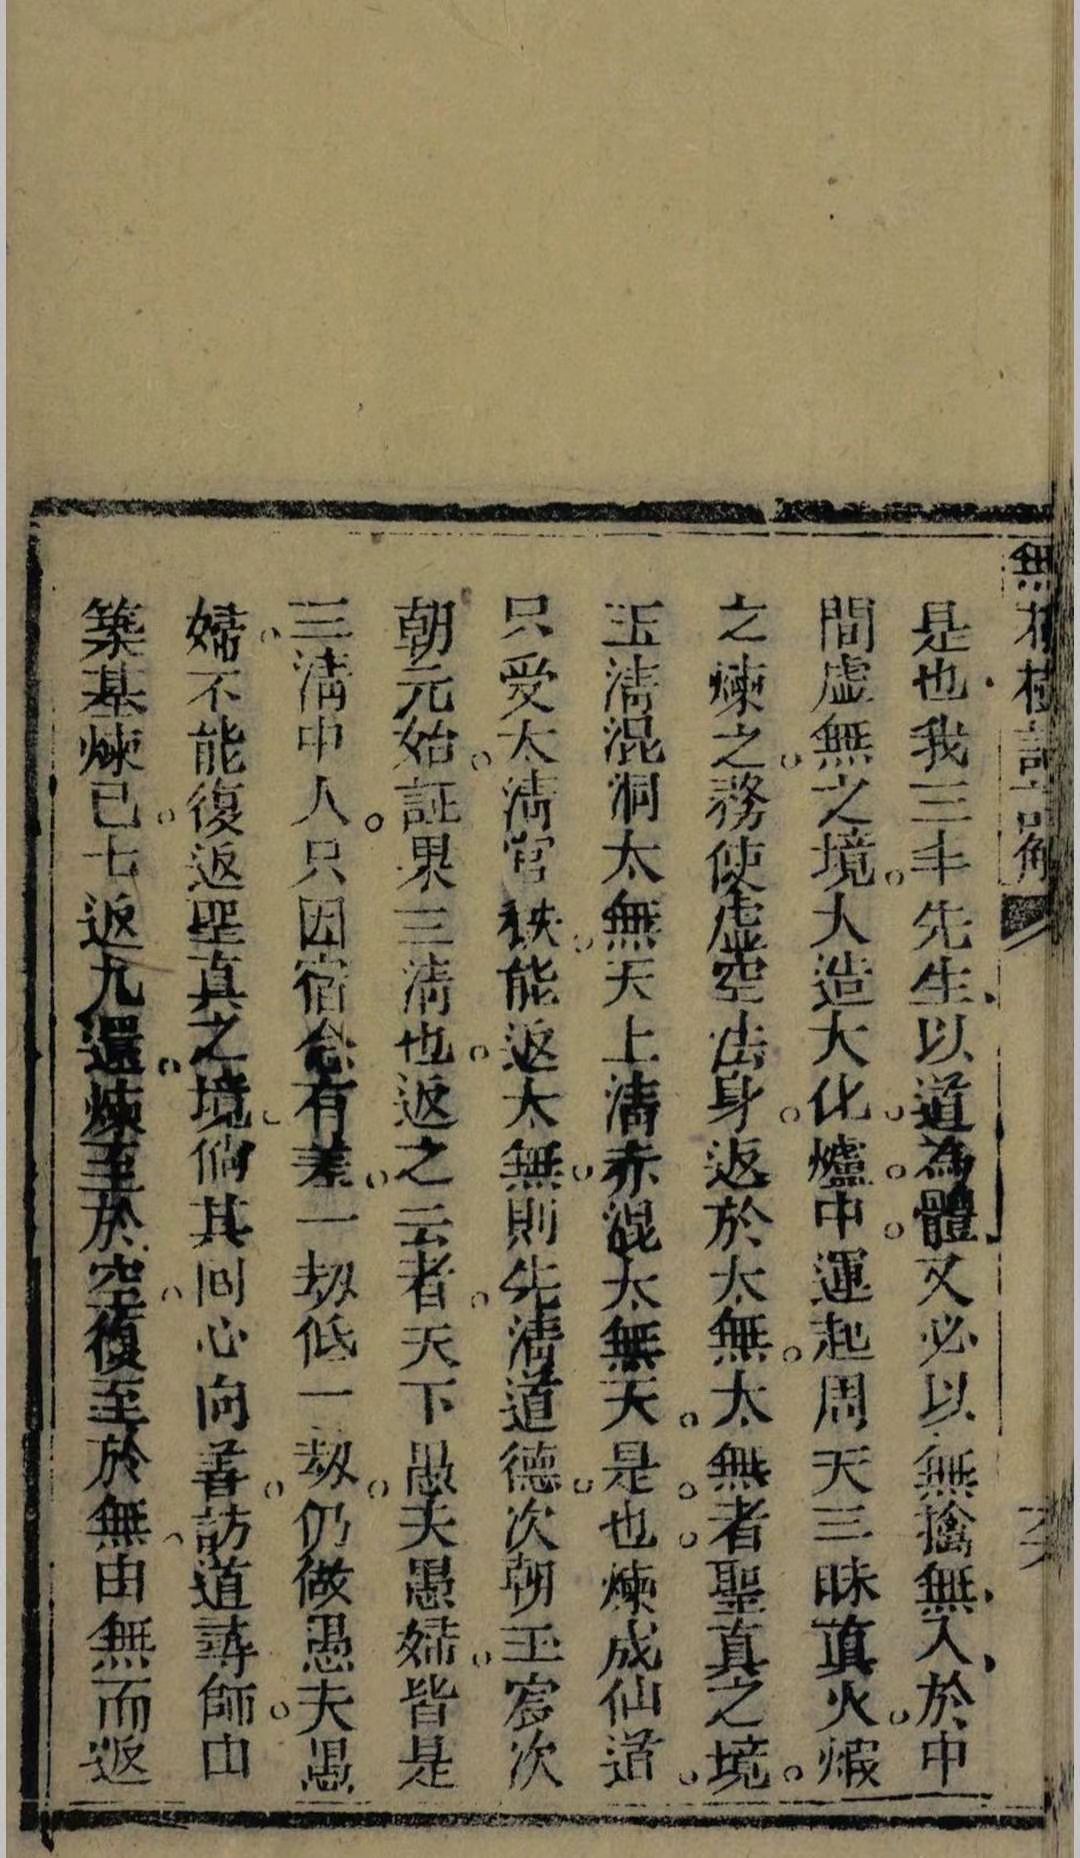 無根樹詞註解
是也我三丰先生以道為體又必以無擒無入於中
間虛無之境大造大化爐中運起周天三昧真火煅
之煉之務使虛空法身返於太無太無者聖真之境
玉淸混洞太無天上淸赤混太無天是也煉成仙道
只受太淸官秩能返太無則先淸道德次朝玉宸次
朝元始証果三淸也返之云者天下愚夫愚婦皆是
三淸中人只因宿念有差一劫低一劫仍做愚夫愚
婦不能復返聖真之境倘其回心向善訪道尋師由
築基煉已七返九還煉至於空復至於無由無而返